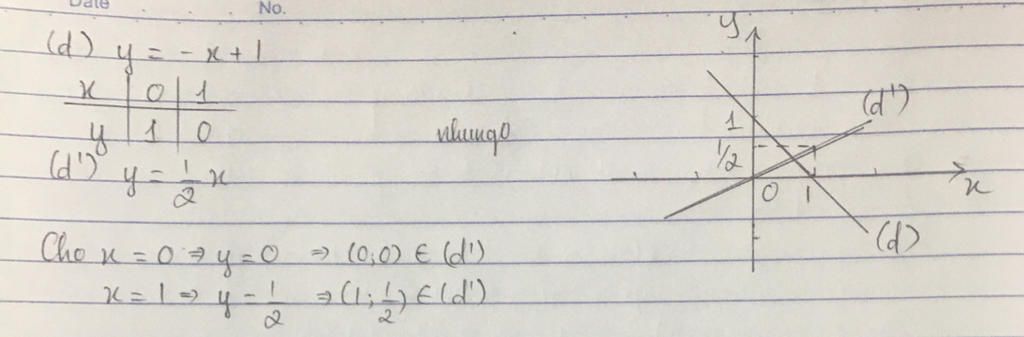 Date No.
(d) y = - x + 1
x | 0 | 1
y | 1 | 0
nhungo
(d') y = 1/2 x
Cho x = 0 ⇒ y = 0 ⇒ (0;0) ∈ (d')
x = 1 ⇒ y = 1/2 ⇒ (1; 1/2) ∈ (d')
y
(d')
1
1/2
0 1 x
(d)